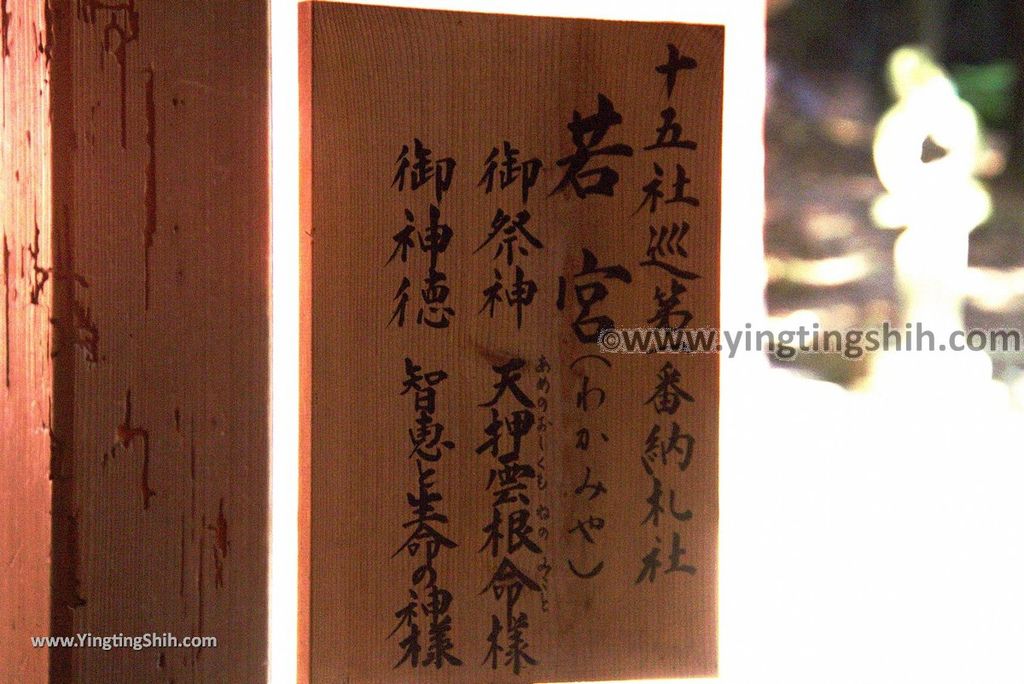 十五社巡第一番納札社
若宮(わかみや)
御祭神 天押雲根命様
あめのおしくも ねの みこと
御神徳 智恵と生命の神様
©www.yingtingshih.com
www.YingtingShih.com